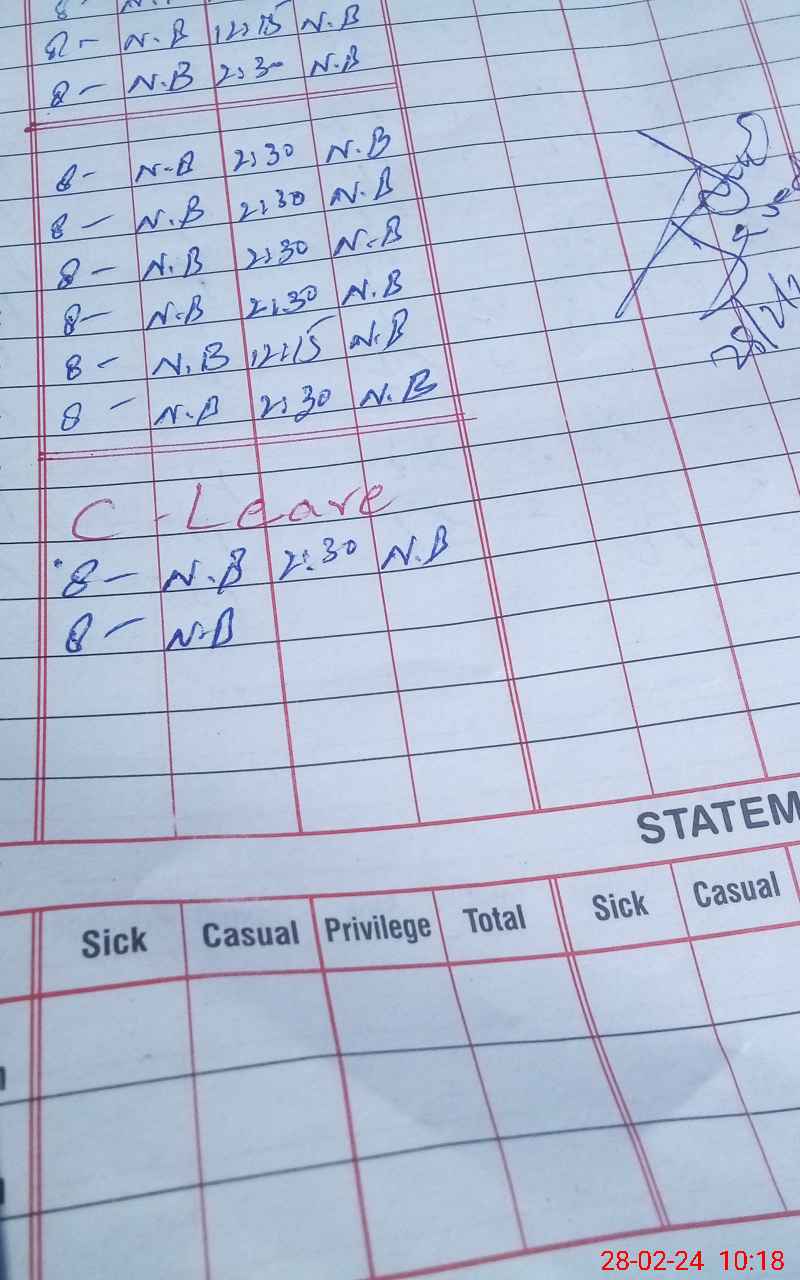 8-
8- N.B 12:15 N.B
8- N.B 2:30 N.B
8- N.B 2:30 N.B
8- N.B 2:30 N.B
8- N.B 2:30 N.B
8- N.B 2:30 N.B
8- N.B 12:15 N.B
8- N.B 2:30 N.B
C-Leave
8- N.B 2:30 N.B
8- N.B
STATEM
Sick Casual Privilege Total Sick Casual
28-02-24 10:18